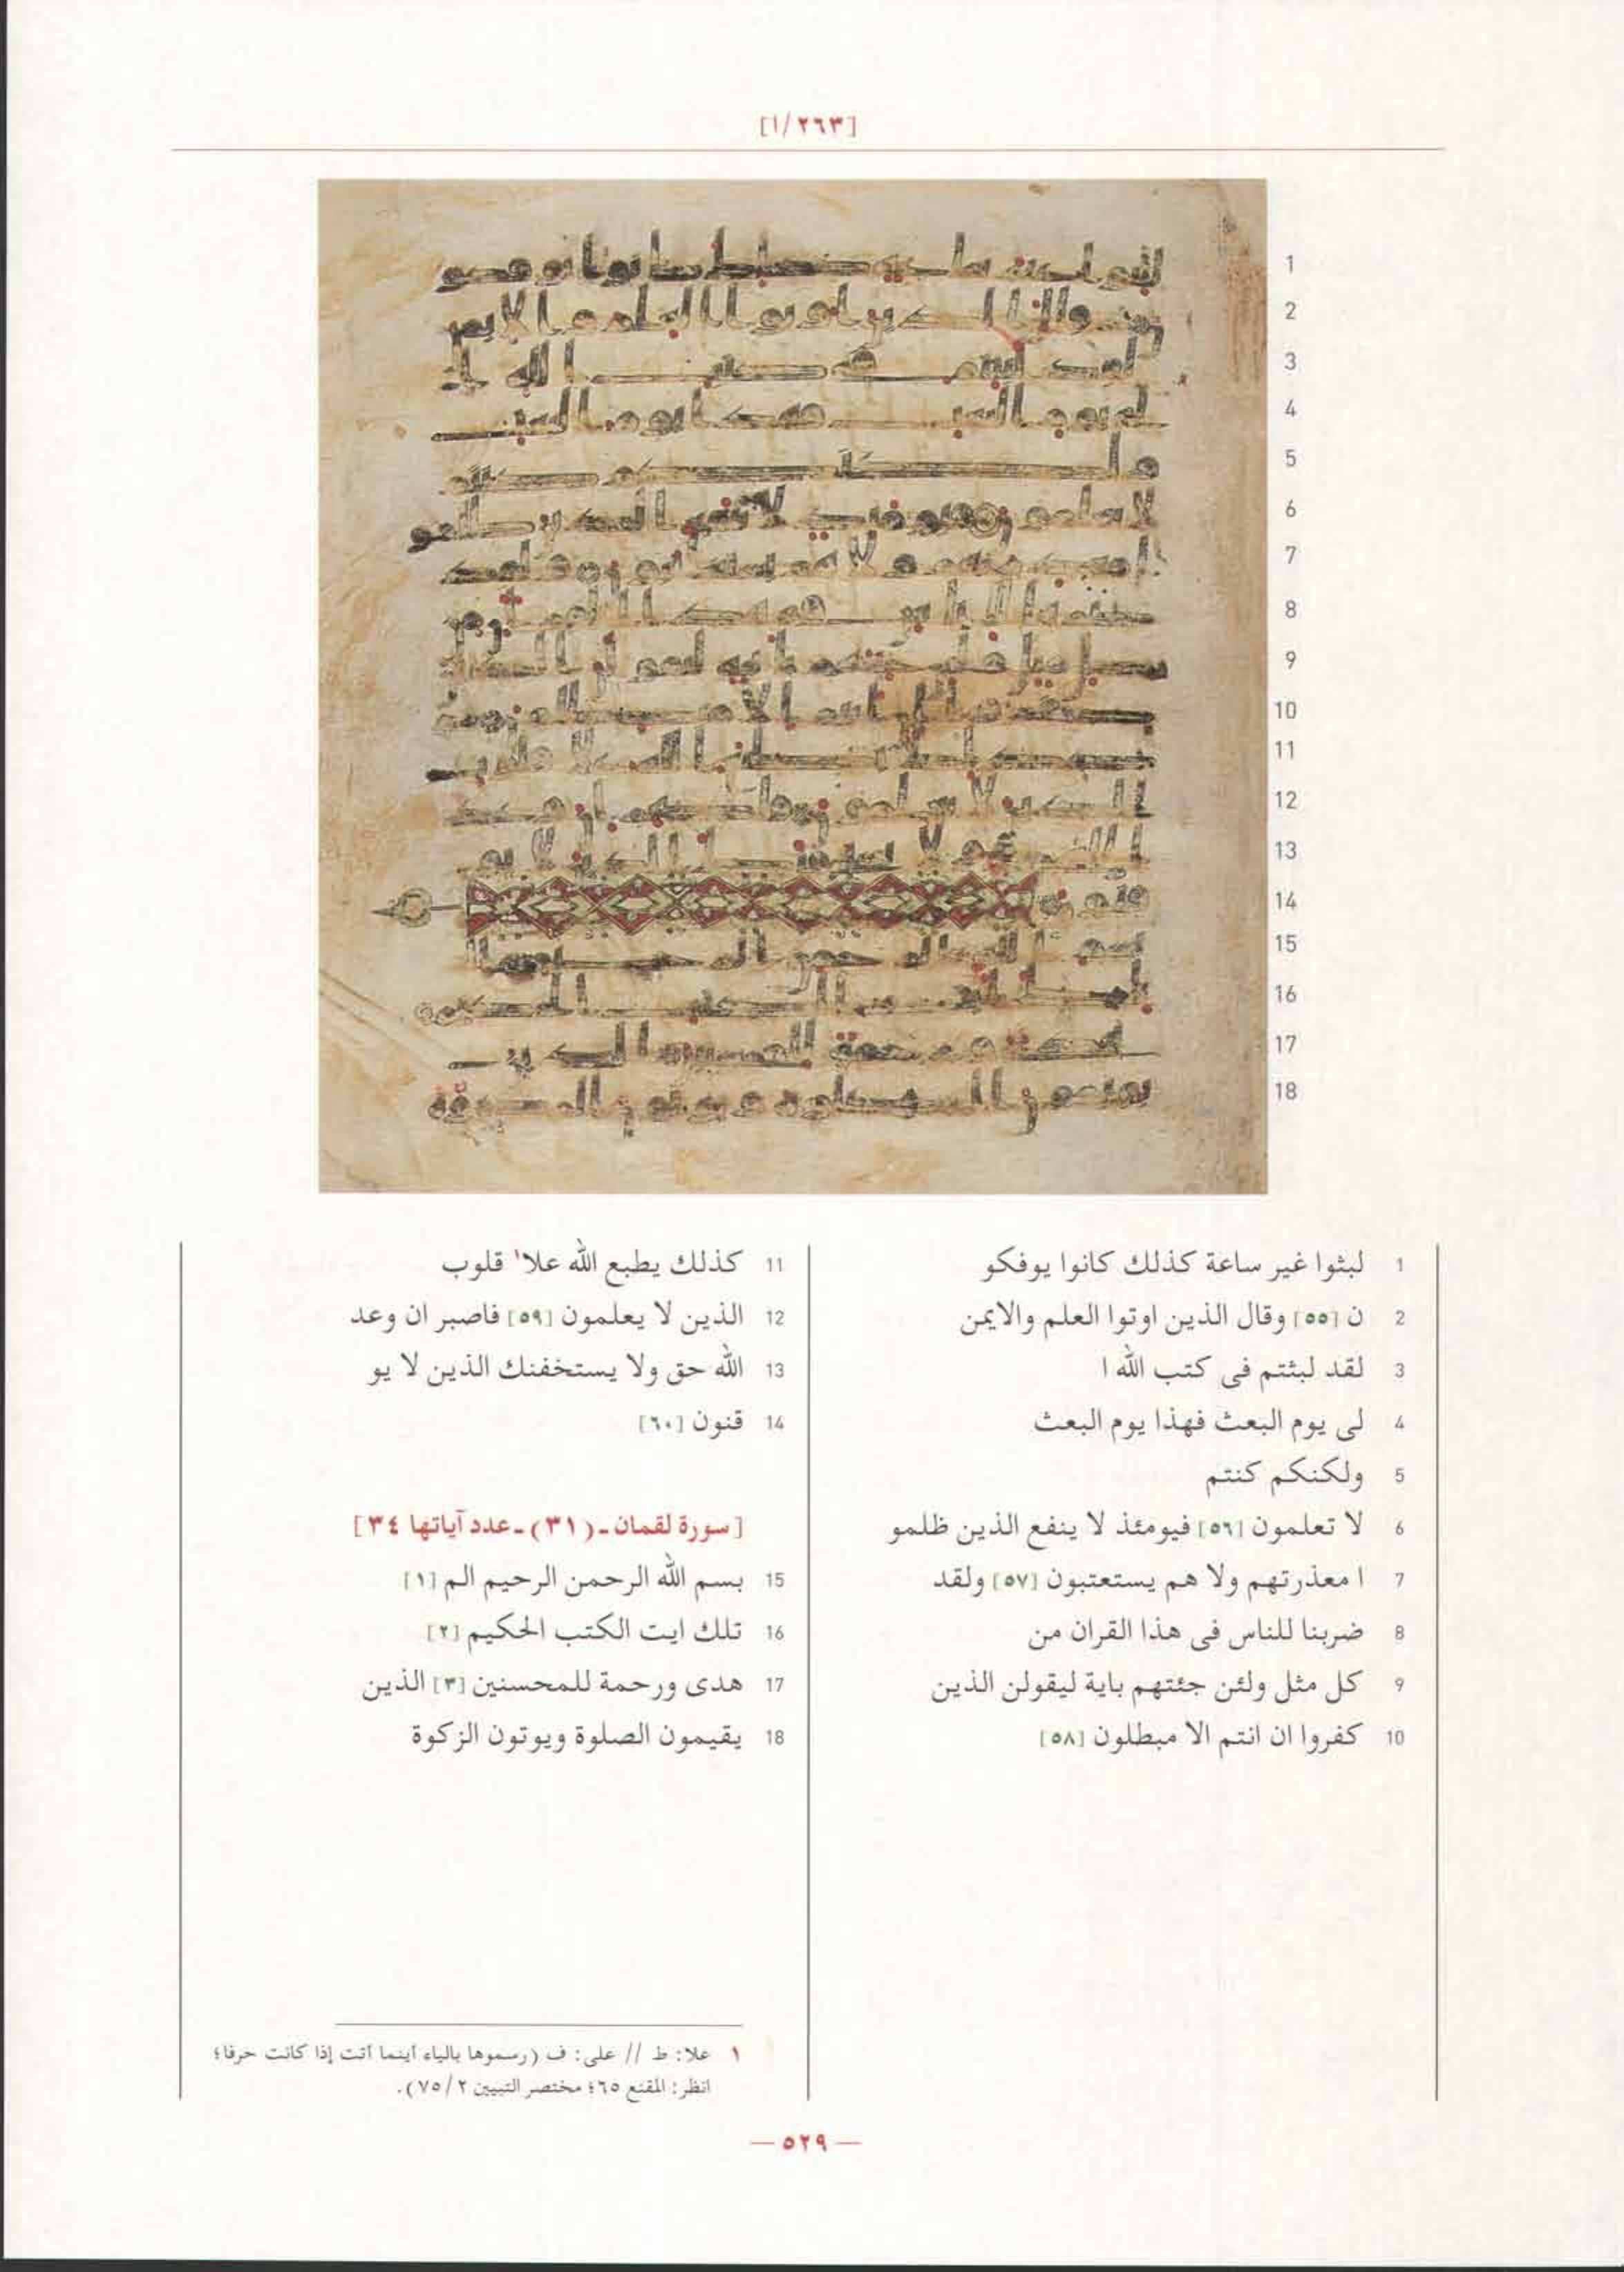 [١/٢٦٣]
1 لبثوا غير ساعة كذلك كانوا يوفكو
2 ن [٥٥] وقال الذين اوتوا العلم والايمن
3 لقد لبثتم فى كتب الله ا
4 لى يوم البعث فهذا يوم البعث
5 ولكنكم كنتم
6 لا تعلمون [٥٦] فيومئذ لا ينفع الذين ظلمو
7 ا معذرتهم ولا هم يستعتبون [٥٧] ولقد
8 ضربنا للناس فى هذا القران من
9 كل مثل ولئن جئتهم باية ليقولن الذين
10 كفروا ان انتم الا مبطلون [٥٨]
11 كذلك يطبع الله علا١ قلوب
12 الذين لا يعلمون [٥٩] فاصبر ان وعد
13 الله حق ولا يستخفنك الذين لا يو
14 قنون [٦٠]
[سورة لقمان ـ (٣١) ـ عدد آياتها ٣٤]
15 بسم الله الرحمن الرحيم الم [١]
16 تلك ايت الكتب الحكيم [٢]
17 هدى ورحمة للمحسنين [٣] الذين
18 يقيمون الصلوة ويوتون الزكوة
١ علا: ط // على: ف (رسموها بالياء أينما أتت إذا كانت حرفا؛
انظر: المقنع ٦٥؛ مختصر التبيين ٢/ ٧٥).
— ٥٢٩ —